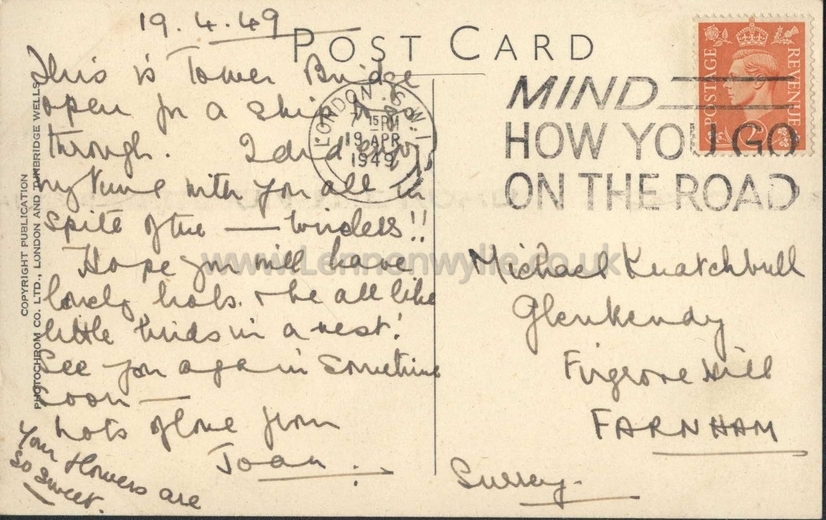 19.4.49
POST CARD
This is Tower Bridge
open for a ship to go
through. I did enjoy
my time with you all in
spite of the — windless!!
Hope you will have
lovely hols. & be all like
little birds in a nest!
See you again sometime
soon —
Lots of love from
Joan.
Your flowers are
so sweet.
COPYRIGHT PUBLICATION
PHOTOCHROM CO. LTD., LONDON AND TUNBRIDGE WELLS
LONDON S.W.1
15 PM
19 APR
1949
MIND
HOW YOU GO
ON THE ROAD
POSTAGE REVENUE
2D
Michael Knatchbull
Glenkendy
Firgrove Hill
FARNHAM
Surrey.
www.Lennonwylie.co.uk